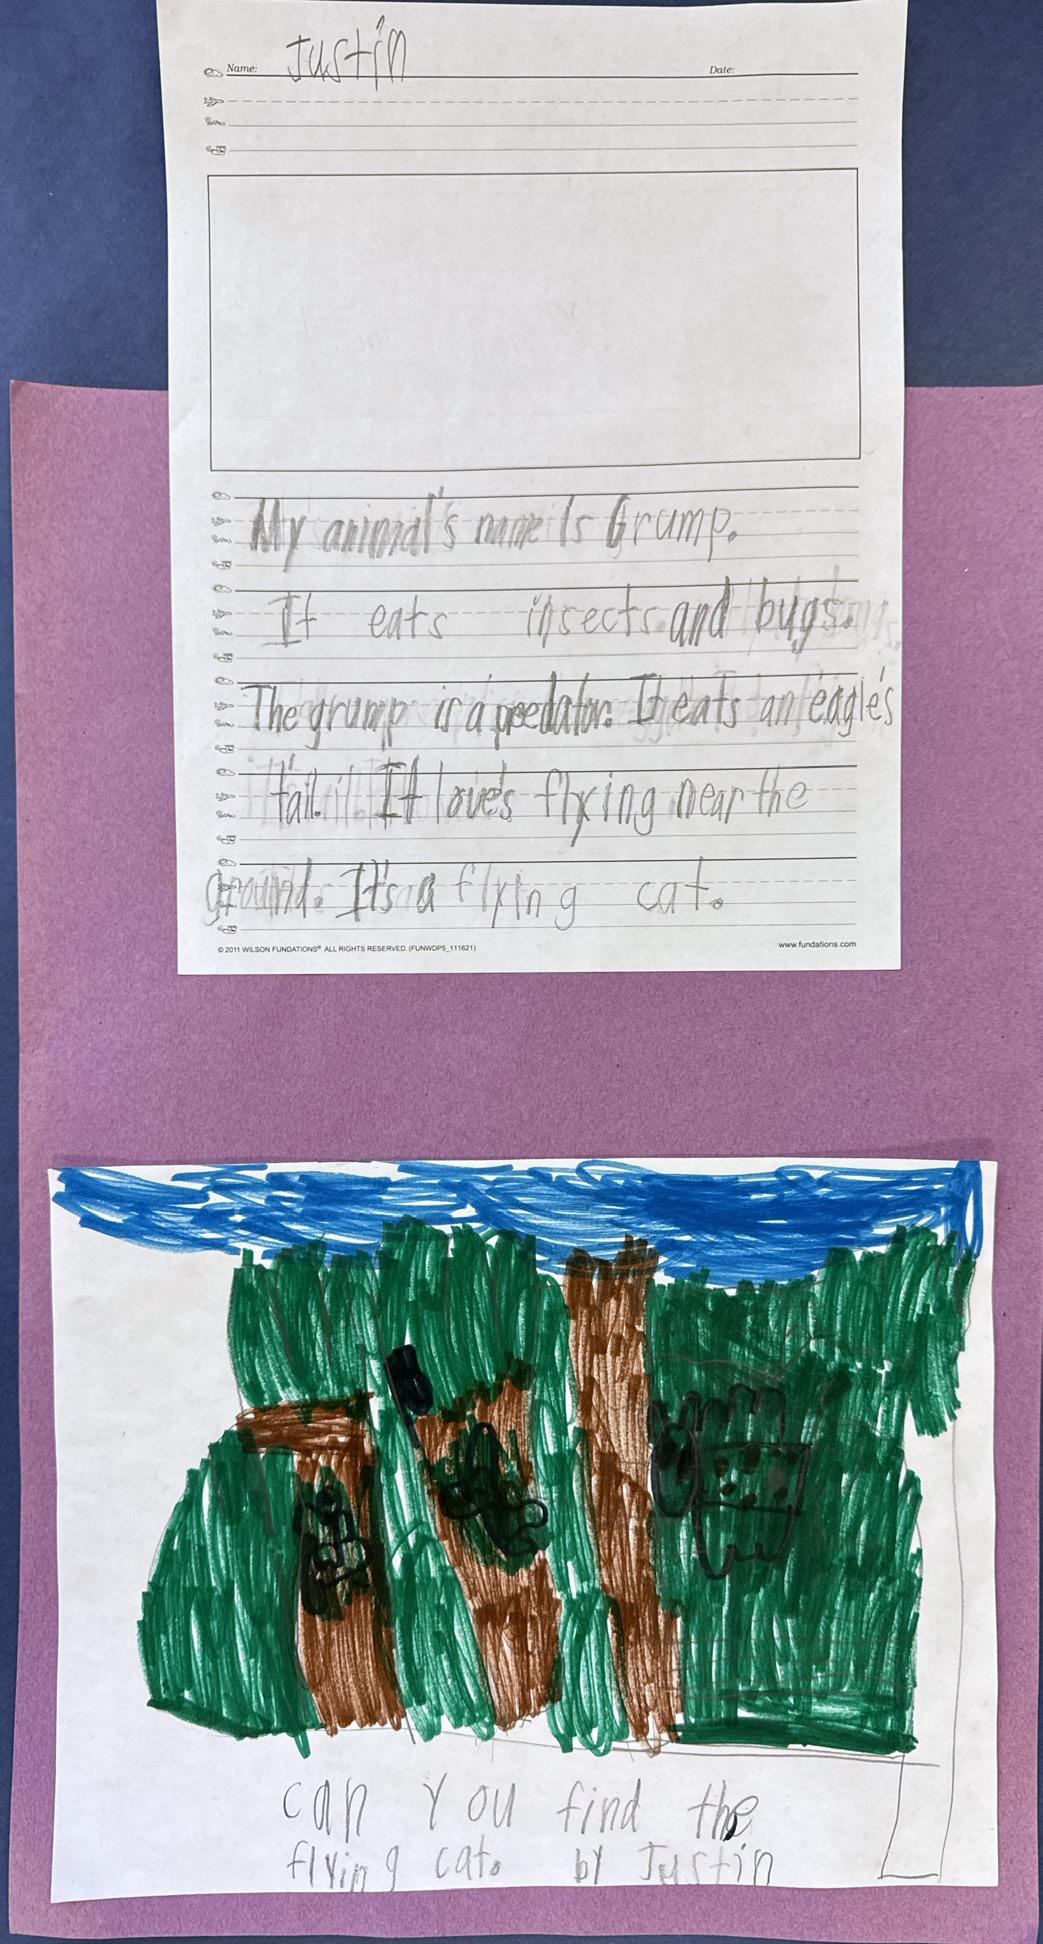 Name: Justin Date:
My animal's name Is Grump.
It eats insects and bugs.
The grump is a predator. It eats an eagle's
tail. It love's flying near the
ground. It's a flying cat.
© 2011 WILSON FUNDATIONS® ALL RIGHTS RESERVED. (FUNWDP5_111621) www.fundations.com
can You find the
flying cat. by Justin